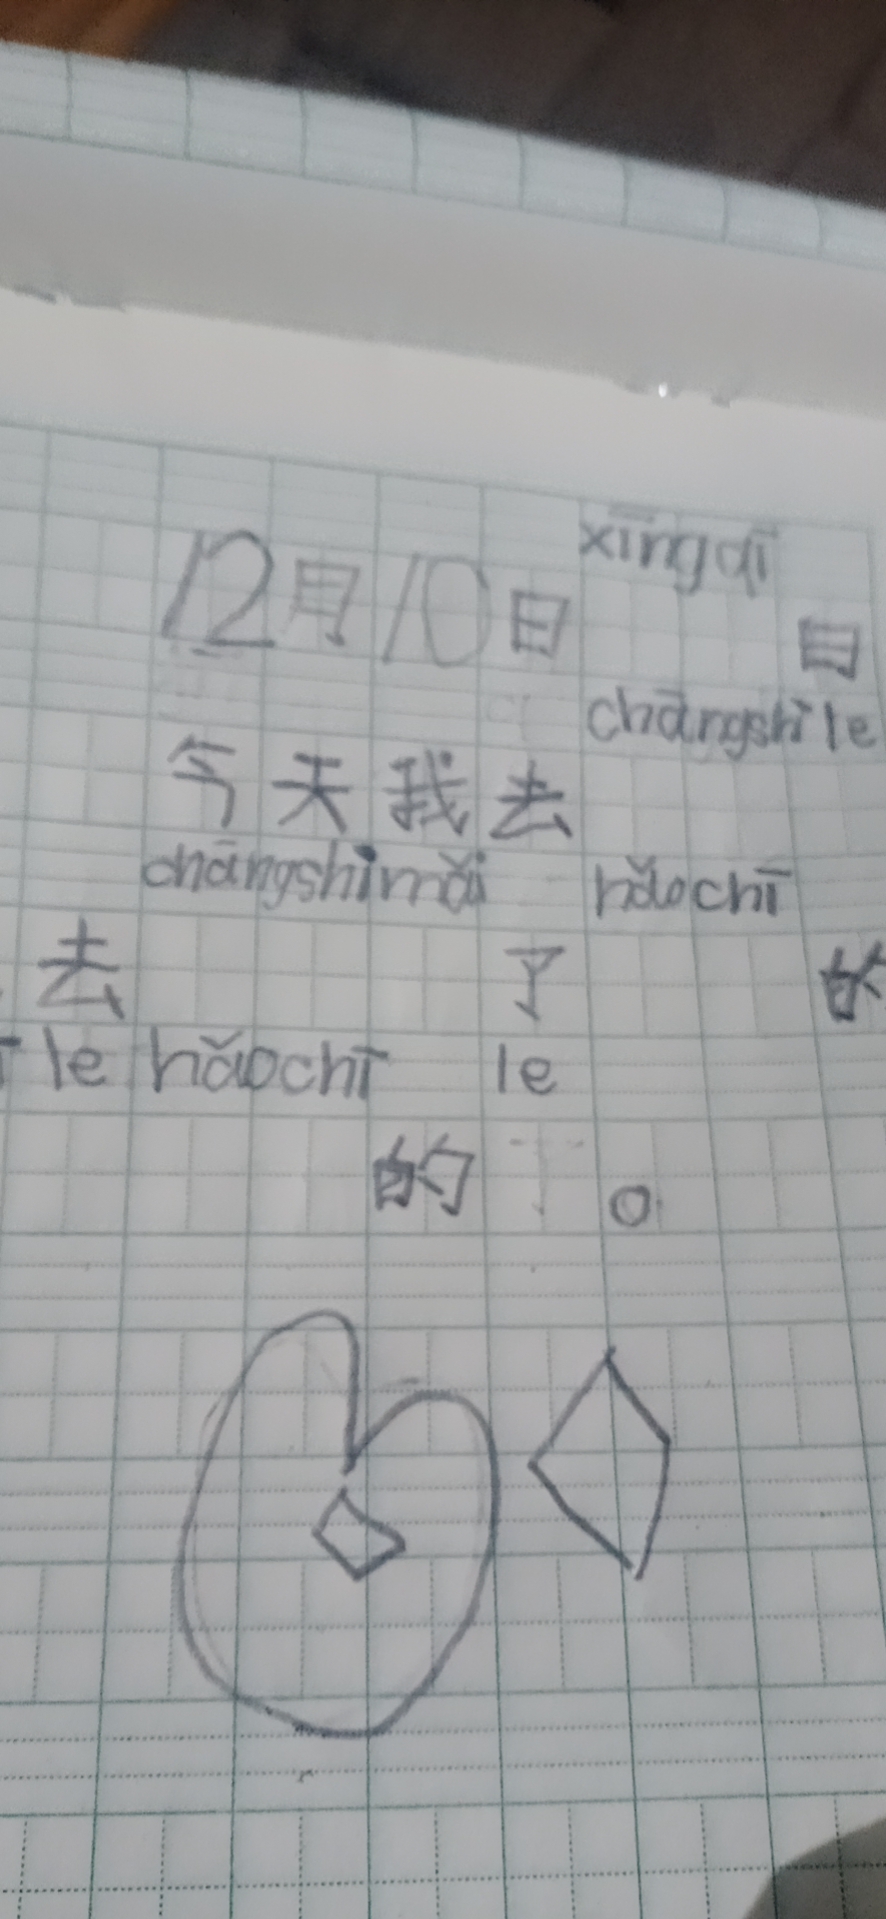 xīngqī
12月10日 日
chāngshì le
今天我去
chāngshimǎi hǎochī
去 了 的
le hǎochī le
的了。